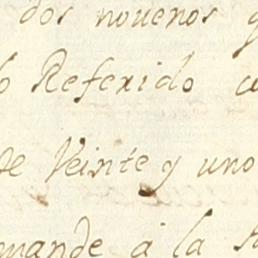 dos nouenos
Referido
Veinte y uno
mande a la